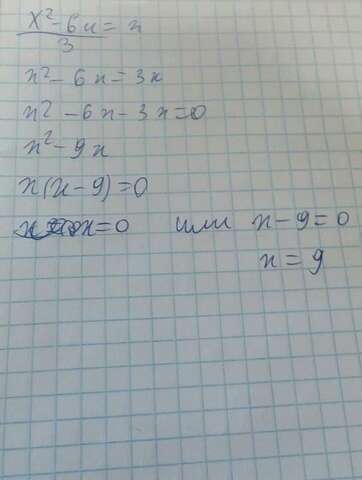 (x² - 6x)/3 = x
x² - 6x = 3x
x² - 6x - 3x = 0
x² - 9x
x(x - 9) = 0
x = 0 или x - 9 = 0
x = 9